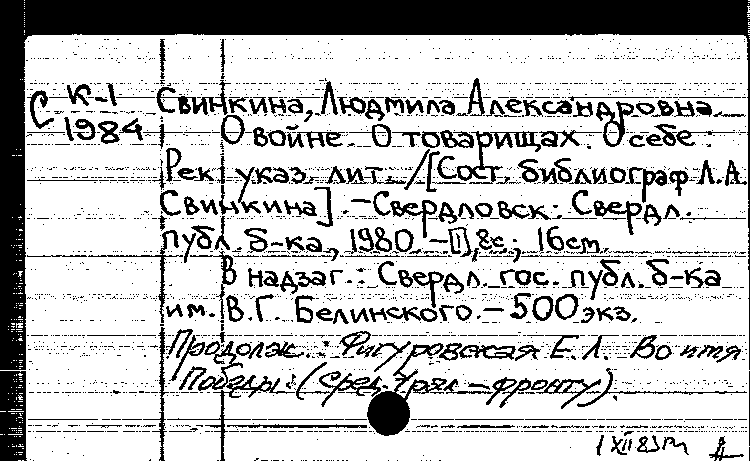 С К-1 Свинкина, Людмила Александровна.
1984 О войне. О товарищах. О себе:
Рек. указ. лит. /[Сост. библиограф Л.А.
Свинкина]. – Свердловск: Свердл.
публ. б-ка, 1980. – [I], 8с.; 16см.
В надзаг.: Свердл. гос. публ. б-ка
им. В.Г. Белинского. – 500 экз.
Продолж.: Фигуровская Е.Л. Во имя
Победы: (Сред. Урал – фронту).